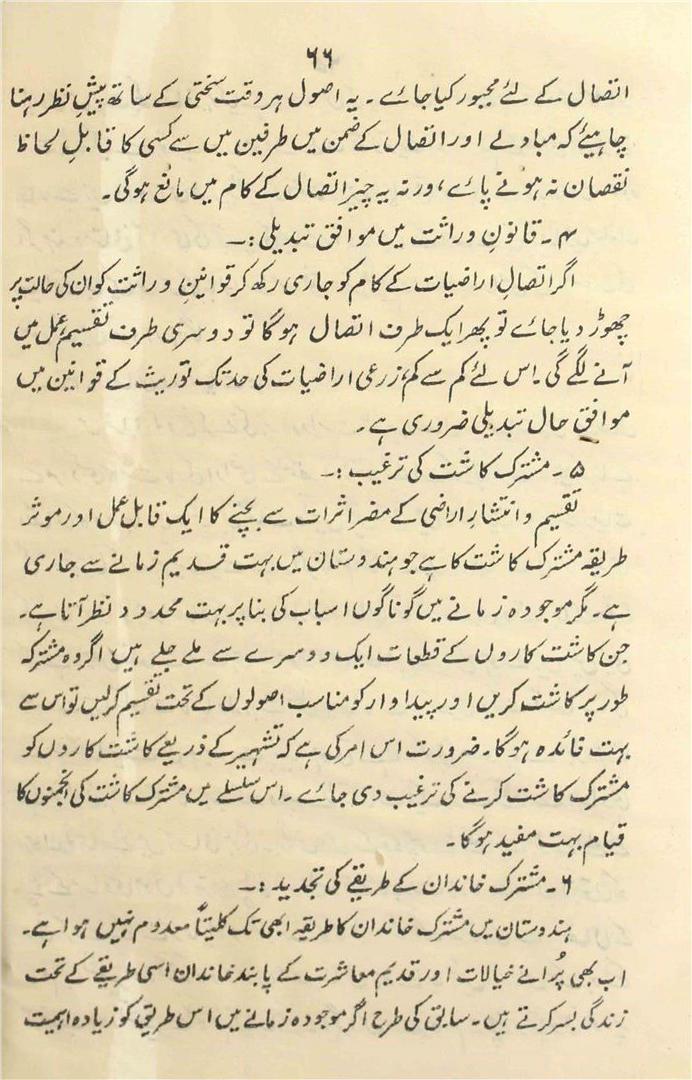 ۶۶
اتصال کے لئے مجبور کیا جائے۔ یہ اصول ہر وقت سختی کے ساتھ پیشِ نظر رہنا
چاہیئے کہ مبادلے اور اتصال کے ضمن میں طرفین میں سے کسی کا قابلِ لحاظ
نقصان نہ ہونے پائے، ورنہ یہ چیز اتصال کے کام میں مانع ہوگی۔
۴۔ قانونِ وراثت میں موافق تبدیلی:۔
اگر اتصالِ اراضیات کے کام کو جاری رکھ کر قوانینِ وراثت کو ان کی حالت پر
چھوڑ دیا جائے تو پھر ایک طرف اتصال ہوگا تو دوسری طرف تقسیم عمل میں
آنے لگے گی۔ اس لئے کم سے کم، زرعی اراضیات کی حد تک توریث کے قوانین میں
موافقِ حال تبدیلی ضروری ہے۔
۵۔ مشترک کاشت کی ترغیب:۔
تقسیم و انتشارِ اراضی کے مضر اثرات سے بچنے کا ایک قابلِ عمل اور موثر
طریقہ مشترک کاشت کا ہے جو ہندوستان میں بہت قدیم زمانے سے جاری
ہے۔ مگر موجودہ زمانے میں گوناگوں اسباب کی بنا پر بہت محدود نظر آتا ہے۔
جن کاشت کاروں کے قطعات ایک دوسرے سے ملے جلے ہیں اگر وہ مشترکہ
طور پر کاشت کریں اور پیداوار کو مناسب اصولوں کے تحت تقسیم کرلیں تو اس سے
بہت فائدہ ہوگا۔ ضرورت اس امر کی ہے کہ تشہیر کے ذریعے کاشت کاروں کو
مشترک کاشت کرنے کی ترغیب دی جائے۔ اس سلسلے میں مشترک کاشت کی انجمنوں کا
قیام بہت مفید ہوگا۔
۶۔ مشترک خاندان کے طریقے کی تجدید:۔
ہندوستان میں مشترک خاندان کا طریقہ ابھی تک کلیتاً معدوم نہیں ہوا ہے۔
اب بھی پُرانے خیالات اور قدیم معاشرت کے پابند خاندان اسی طریقے کے تحت
زندگی بسر کرتے ہیں۔ سابق کی طرح اگر موجودہ زمانے میں اس طریق کو زیادہ اہمیت